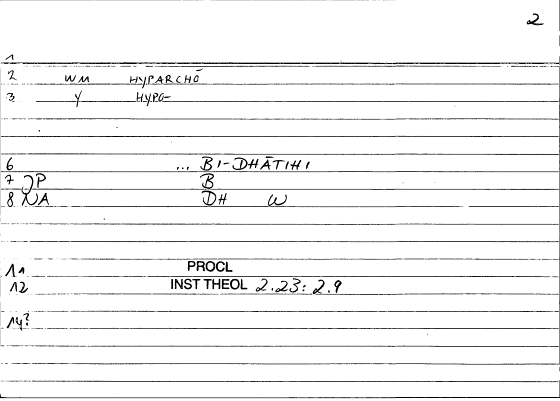 2
1
2 WM HYPARCHŌ
3 Y HYPO-
6 ... BI-DHĀTIHI
7 JP B
8 NA DH W
11 PROCL
12 INST THEOL 2.23: 2.9
14?